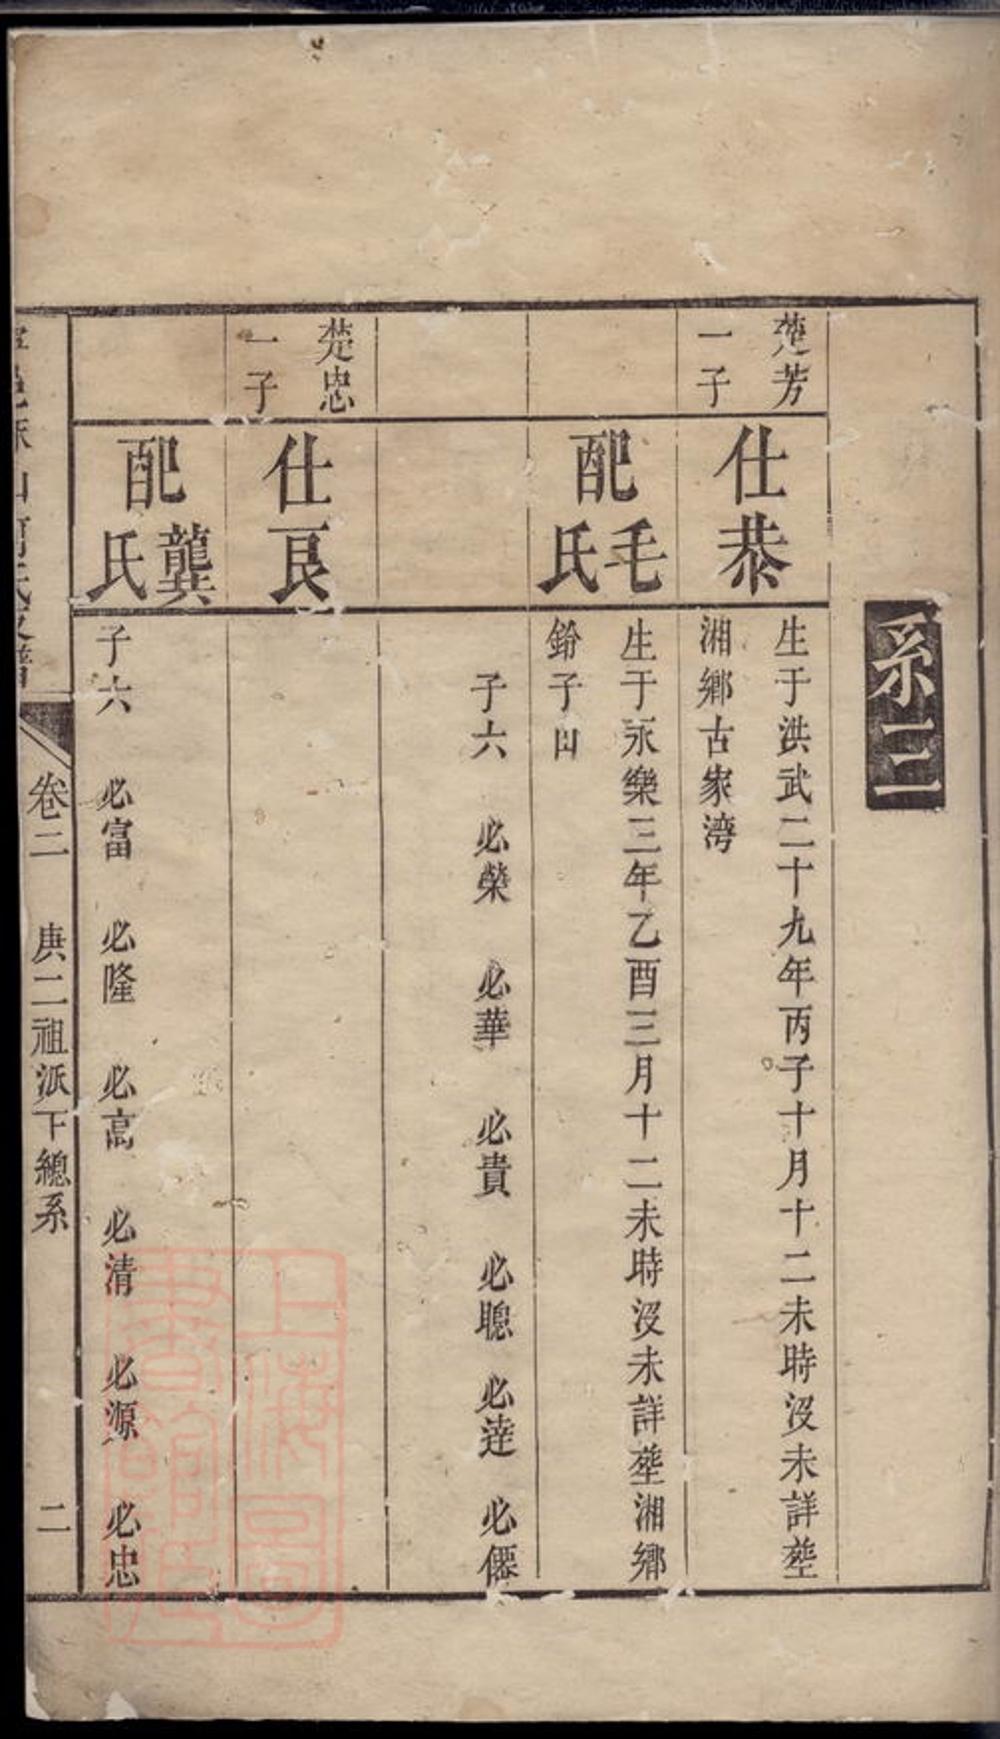 系二
楚芳
一子
仕恭
生于洪武二十九年丙子十月十二未時没未詳塟
湘鄉古家湾
配毛氏
生于永樂三年乙酉三月十二未時没未詳塟湘鄉
鈴子凹
子六 必榮 必華 必貴 必聰 必達 必僊
楚忠
一子
仕良
配龔氏
子六 必富 必隆 必高 必清 必源 必忠
卷二 庚二祖派下總系 二
上海圖
書館藏